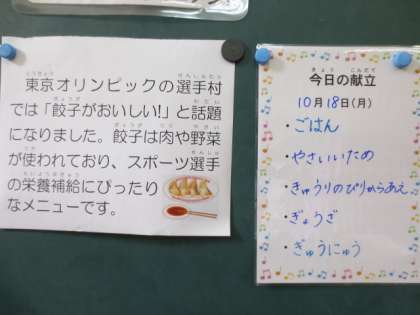 東京オリンピックの選手村
では「餃子がおいしい!」と話題
になりました。餃子は肉や野菜
が使われており、スポーツ選手
の栄養補給にぴったり
なメニューです。
今日の献立
10月18日(月)
・ごはん
・やさいいため
・きゅうりのぴりからあえ
・ぎょうざ
・ぎゅうにゅう